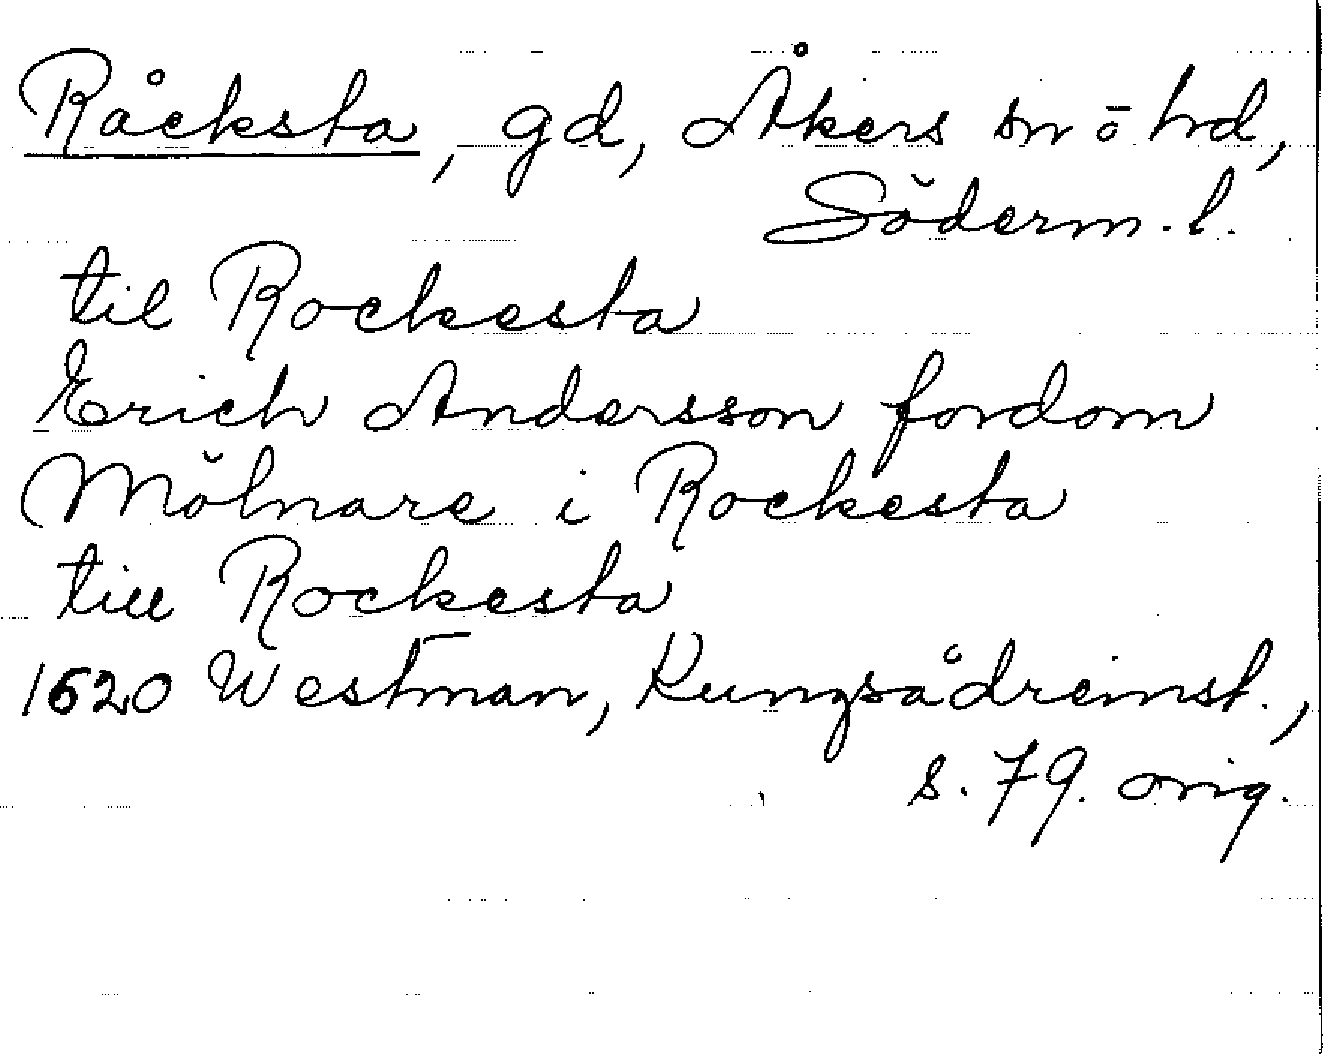 Råcksta, gd, Åkers sn o hd,
Söderm. l.
til Rockesta
Erich Andersson fordom
Mölnare i Rockesta
till Rockesta
1620 Westman, Kungsådreinst.,
s. 79. orig.